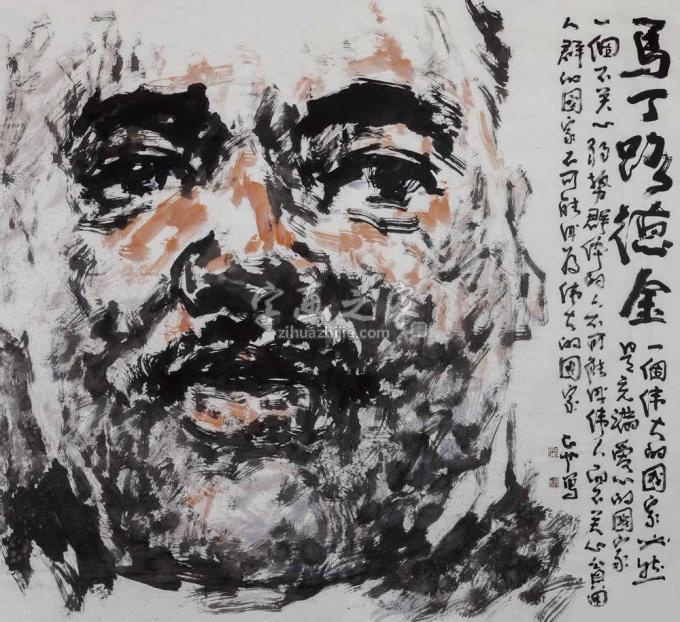 馬丁路德金
一個伟大的國家必然
是充满愛心的國家
一個不关心弱势群体的人不可能成伟人而不关心貧困
人群的國家不可能成為伟大的國家
字画之家
zihuazhijia.com